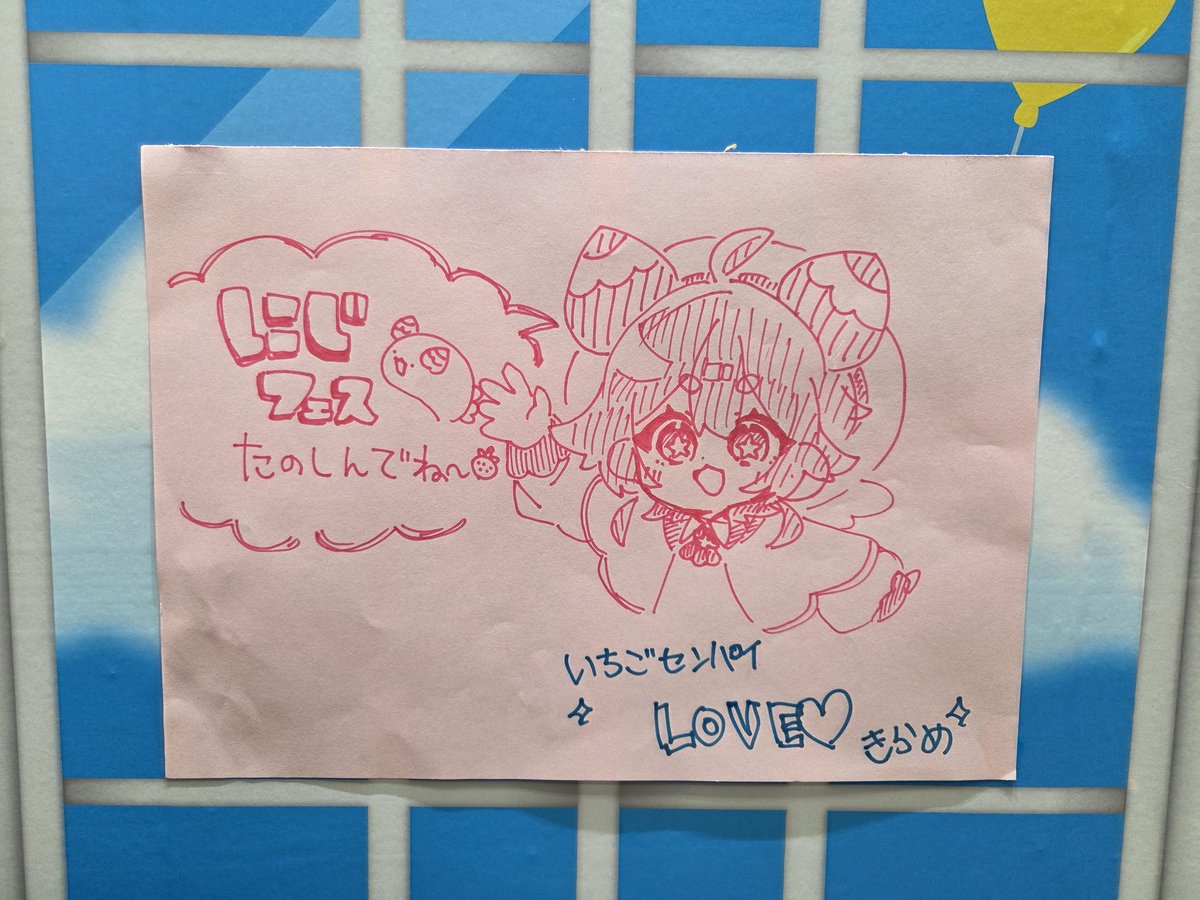 にじ
フェス
たのしんでね〜
いちごセンパイ
LOVE♡
きらめ